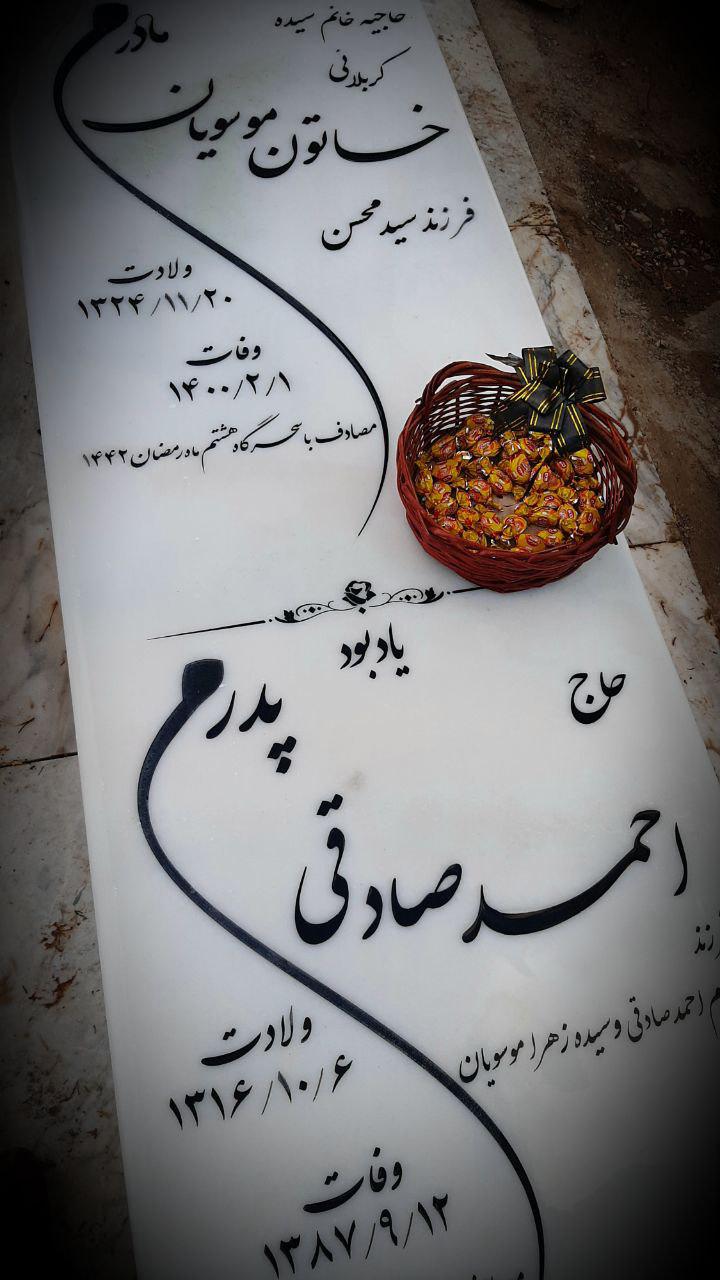 حاجیه خانم سیده
مادرم
کربلائی
خاتون موسویان
فرزند سید محسن
ولادت
۱۳۲۴/۱۱/۲۰
وفات
۱۴۰۰/۲/۱
مصادف با سحرگاه هشتم ماه رمضان ۱۴۴۲
یادبود
حاج
پدرم
احمد صادقی
احمد صادقی و سیده زهرا موسویان
ولادت
۱۳۱۶/۱۰/۶
وفات
۱۳۸۷/۹/۱۲